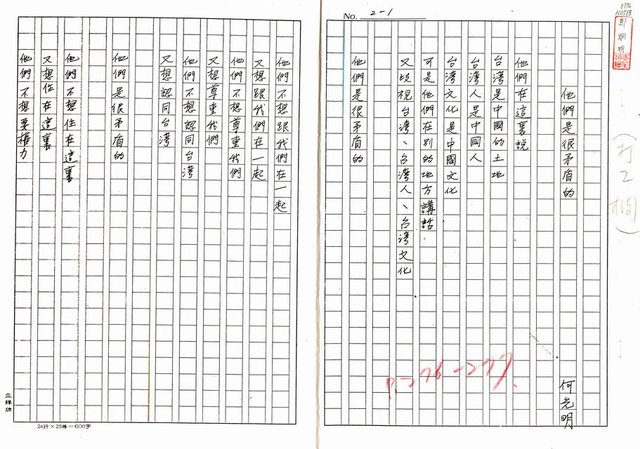 No. 2-1
他們是很矛盾的
何光明
他們在這裏說
台灣是中國的土地
台灣人是中國人
台灣文化是中國文化
可是他們在別的地方講話
又歧視台灣、台灣人、台灣文化
他們是很矛盾的
P.276-277.
他們不想跟我們在一起
又想跟我們在一起
他們不想尊重我們
又想尊重我們
他們不想認同台灣
又想認同台灣
他們是很矛盾的
他們不想住在這裏
又想住在這裏
他們不想要權力
24行×25格=600字